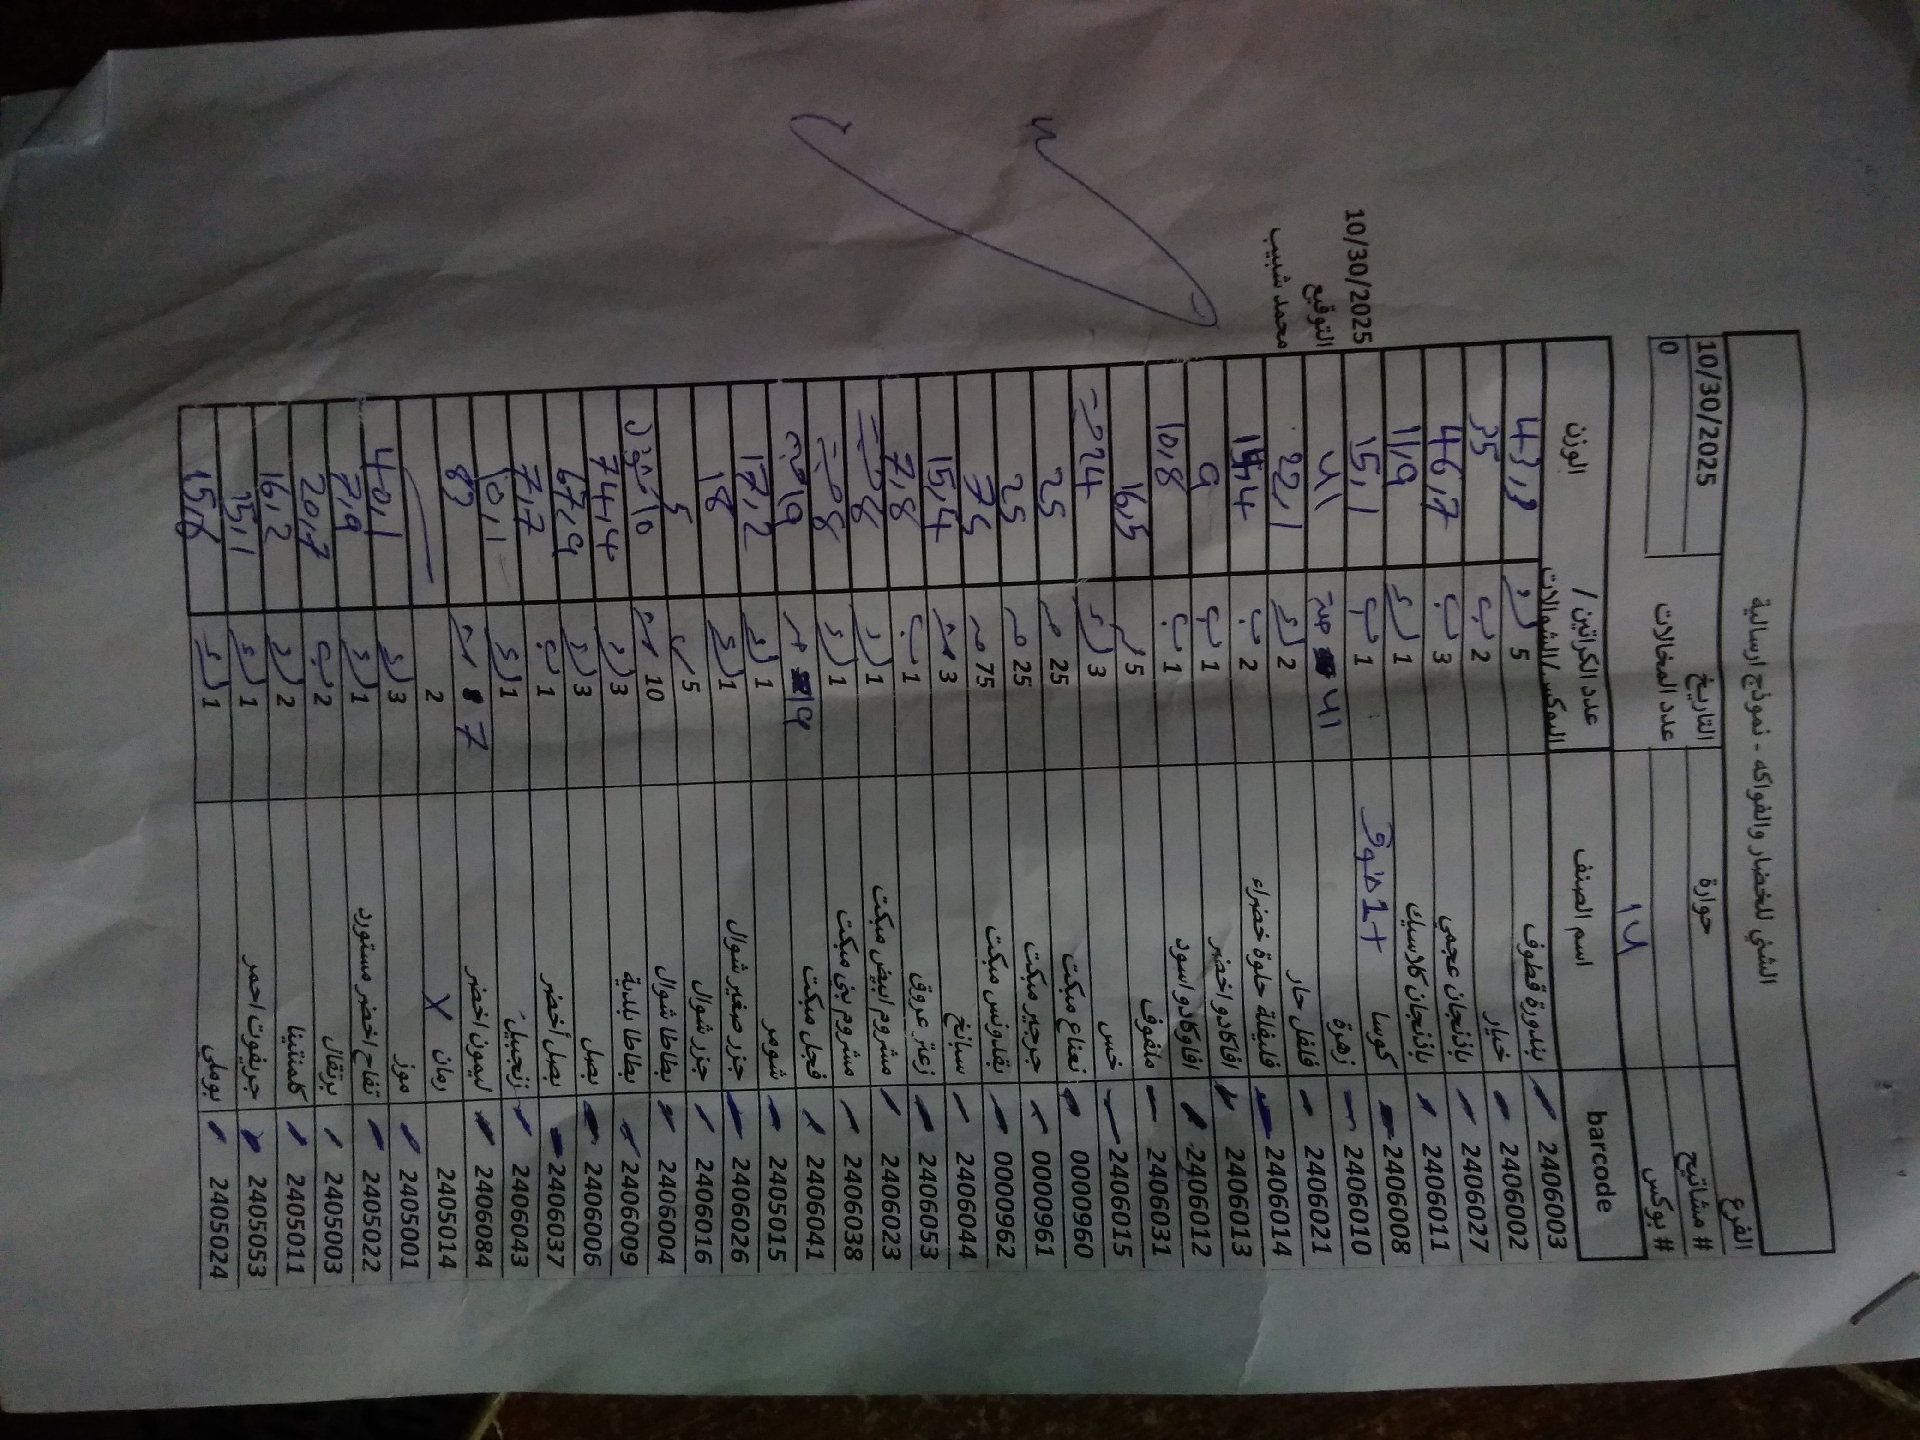 الشني للخضار والفواكه - نموذج ارسالية
الفرع حوارة التاريخ 10/30/2025
# مشاتيح عدد المخالات 0
# بوكس 14
barcode اسم الصنف عدد الكراتين / البوكس/الشوالات الوزن
2406003 بندورة قطوف 5 43,8
2406002 خيار 2 ب 35
2406027 باذنجان عجمي 3 ب 46,7
2406011 باذنجان كلاسيك 1 11,9
2406008 كوسا 1 ب 15,1
2406010 زهرة 41 حبة 41
2406021 فلفل حار 2 22,1
2406014 فليفلة حلوة خضراء 2 ب 14,4
2406013 افاكادو اخضر 1 ب 9
2406012 افاوكادو اسود 1 ب 10,8
2406031 ملفوف 5 16,5
2406015 خس 3 24
0000960 نعناع مبكت 25 25
0000961 جرجير مبكت 25 25
0000962 بقدونس مبكت 75 75
2406044 سبانخ 3 15,4
2406053 زعتر عروق 1 ب 7,8
2406023 مشروم ابيض مبكت 1 8
2406038 مشروم بني مبكت 1 8
2406041 فجل مبكت 19 19
2405015 شومر 1 17,2
2406026 جزر صغير شوال 1 18
2406016 جزر شوال 5 5
2406004 بطاطا شوال 10 10
2406009 بطاطا بلدية 3 74,4
2406006 بصل 3 67,9
2406037 بصل أخضر 1 ب 7,7
2406043 زنجبيل 1 10,1
2406084 ليمون اخضر 7 83
2405014 رمان X 2
2405001 موز 3 40,1
2405022 تفاح اخضر مستورد 1 7,9
2405003 برتقال 2 ب 20,7
2405011 كلمنتينا 2 16,2
2405053 جريفوت احمر 1 15,1
2405024 بوملي 1 15,6
10/30/2025
التوقيع
محمد شبيب